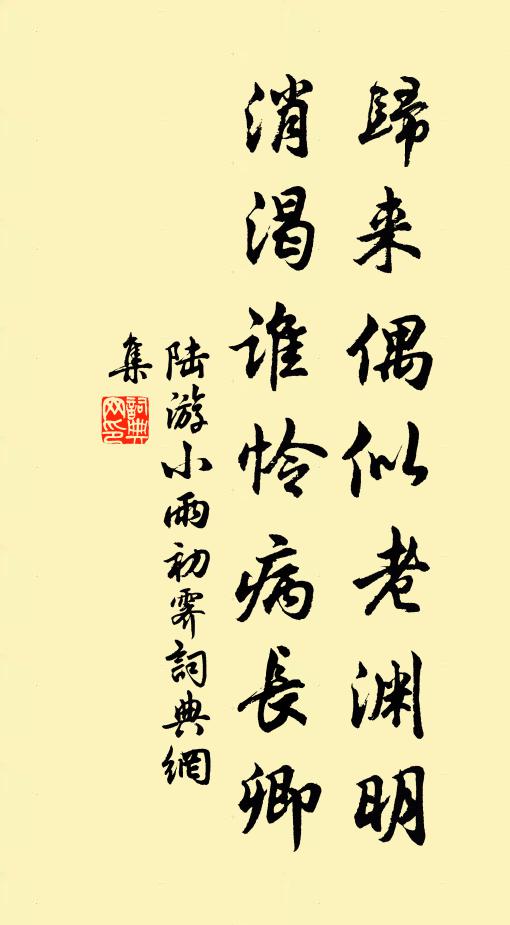 歸来偶似老渊明
消渴谁怜病長卿
陆游小雨初霁詞典網
集
詞典网印